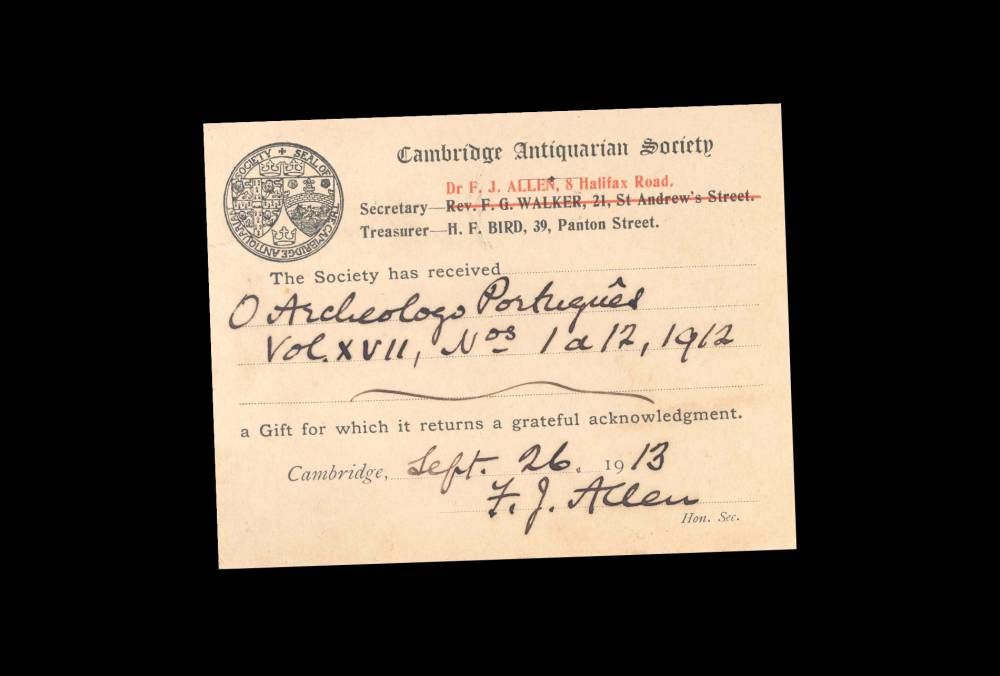 SEAL OF THE CAMBRIDGE ANTIQUARIAN SOCIETY
Cambridge Antiquarian Society
Dr F. J. ALLEN, 8 Halifax Road.
Secretary—Rev. F. G. WALKER, 21, St Andrew's Street.
Treasurer—H. F. BIRD, 39, Panton Street.
The Society has received
O Archeologo Português
Vol. XVII, Nos 1 a 12, 1912
a Gift for which it returns a grateful acknowledgment.
Cambridge, Sept. 26. 1913
F. J. Allen
Hon. Sec.